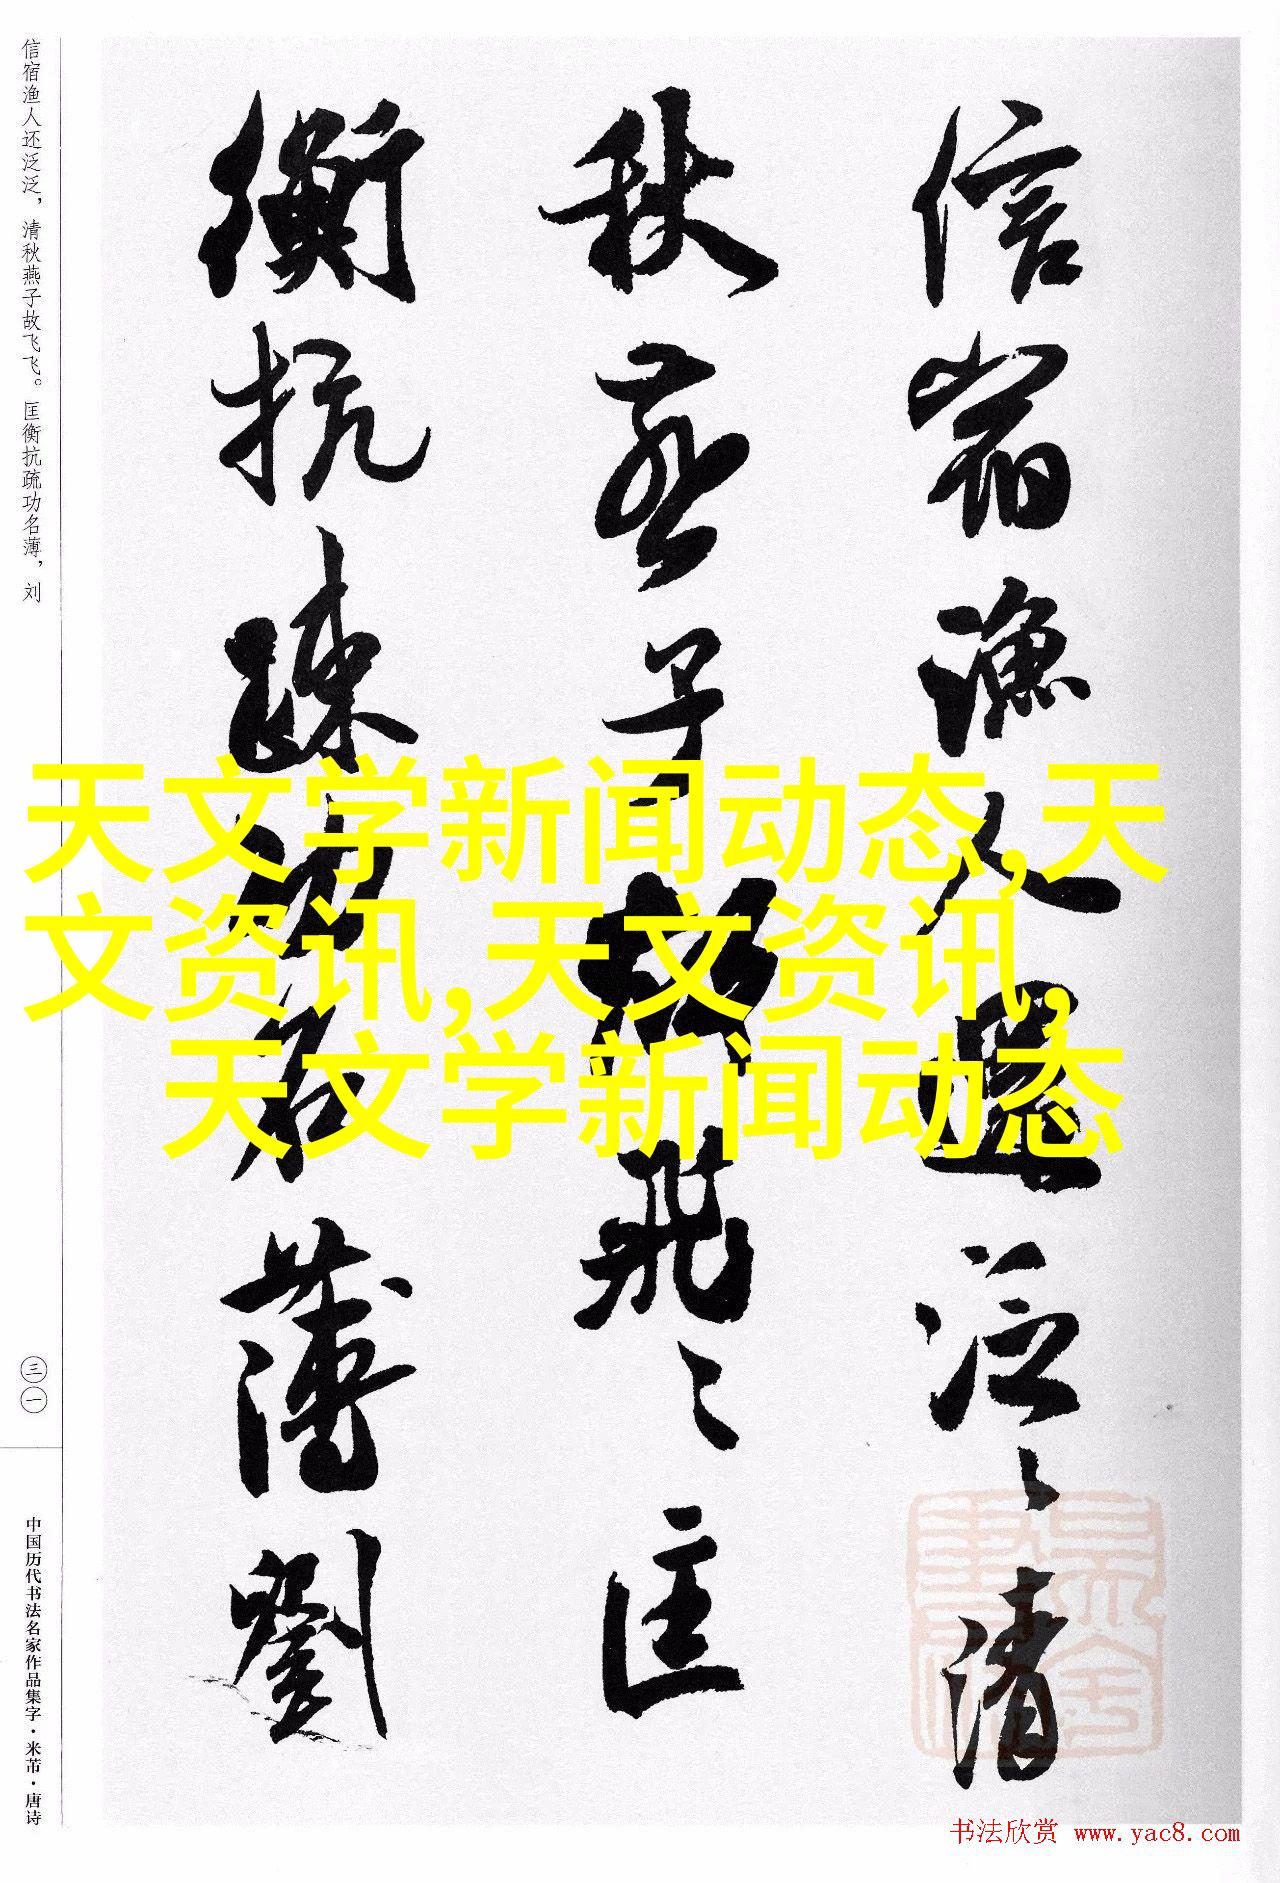 信宿漁人還泛〻清
秋燕子故飛〻匡
衡抗疏功名薄劉
信宿渔人还泛泛，清秋燕子故飞飞。匡衡抗疏功名薄，刘
三一
中国历代书法名家作品集字·米芾·唐诗
天文学新闻动态,天
文资讯,天文资讯,
天文学新闻动态
书法欣赏 www.yac8.com